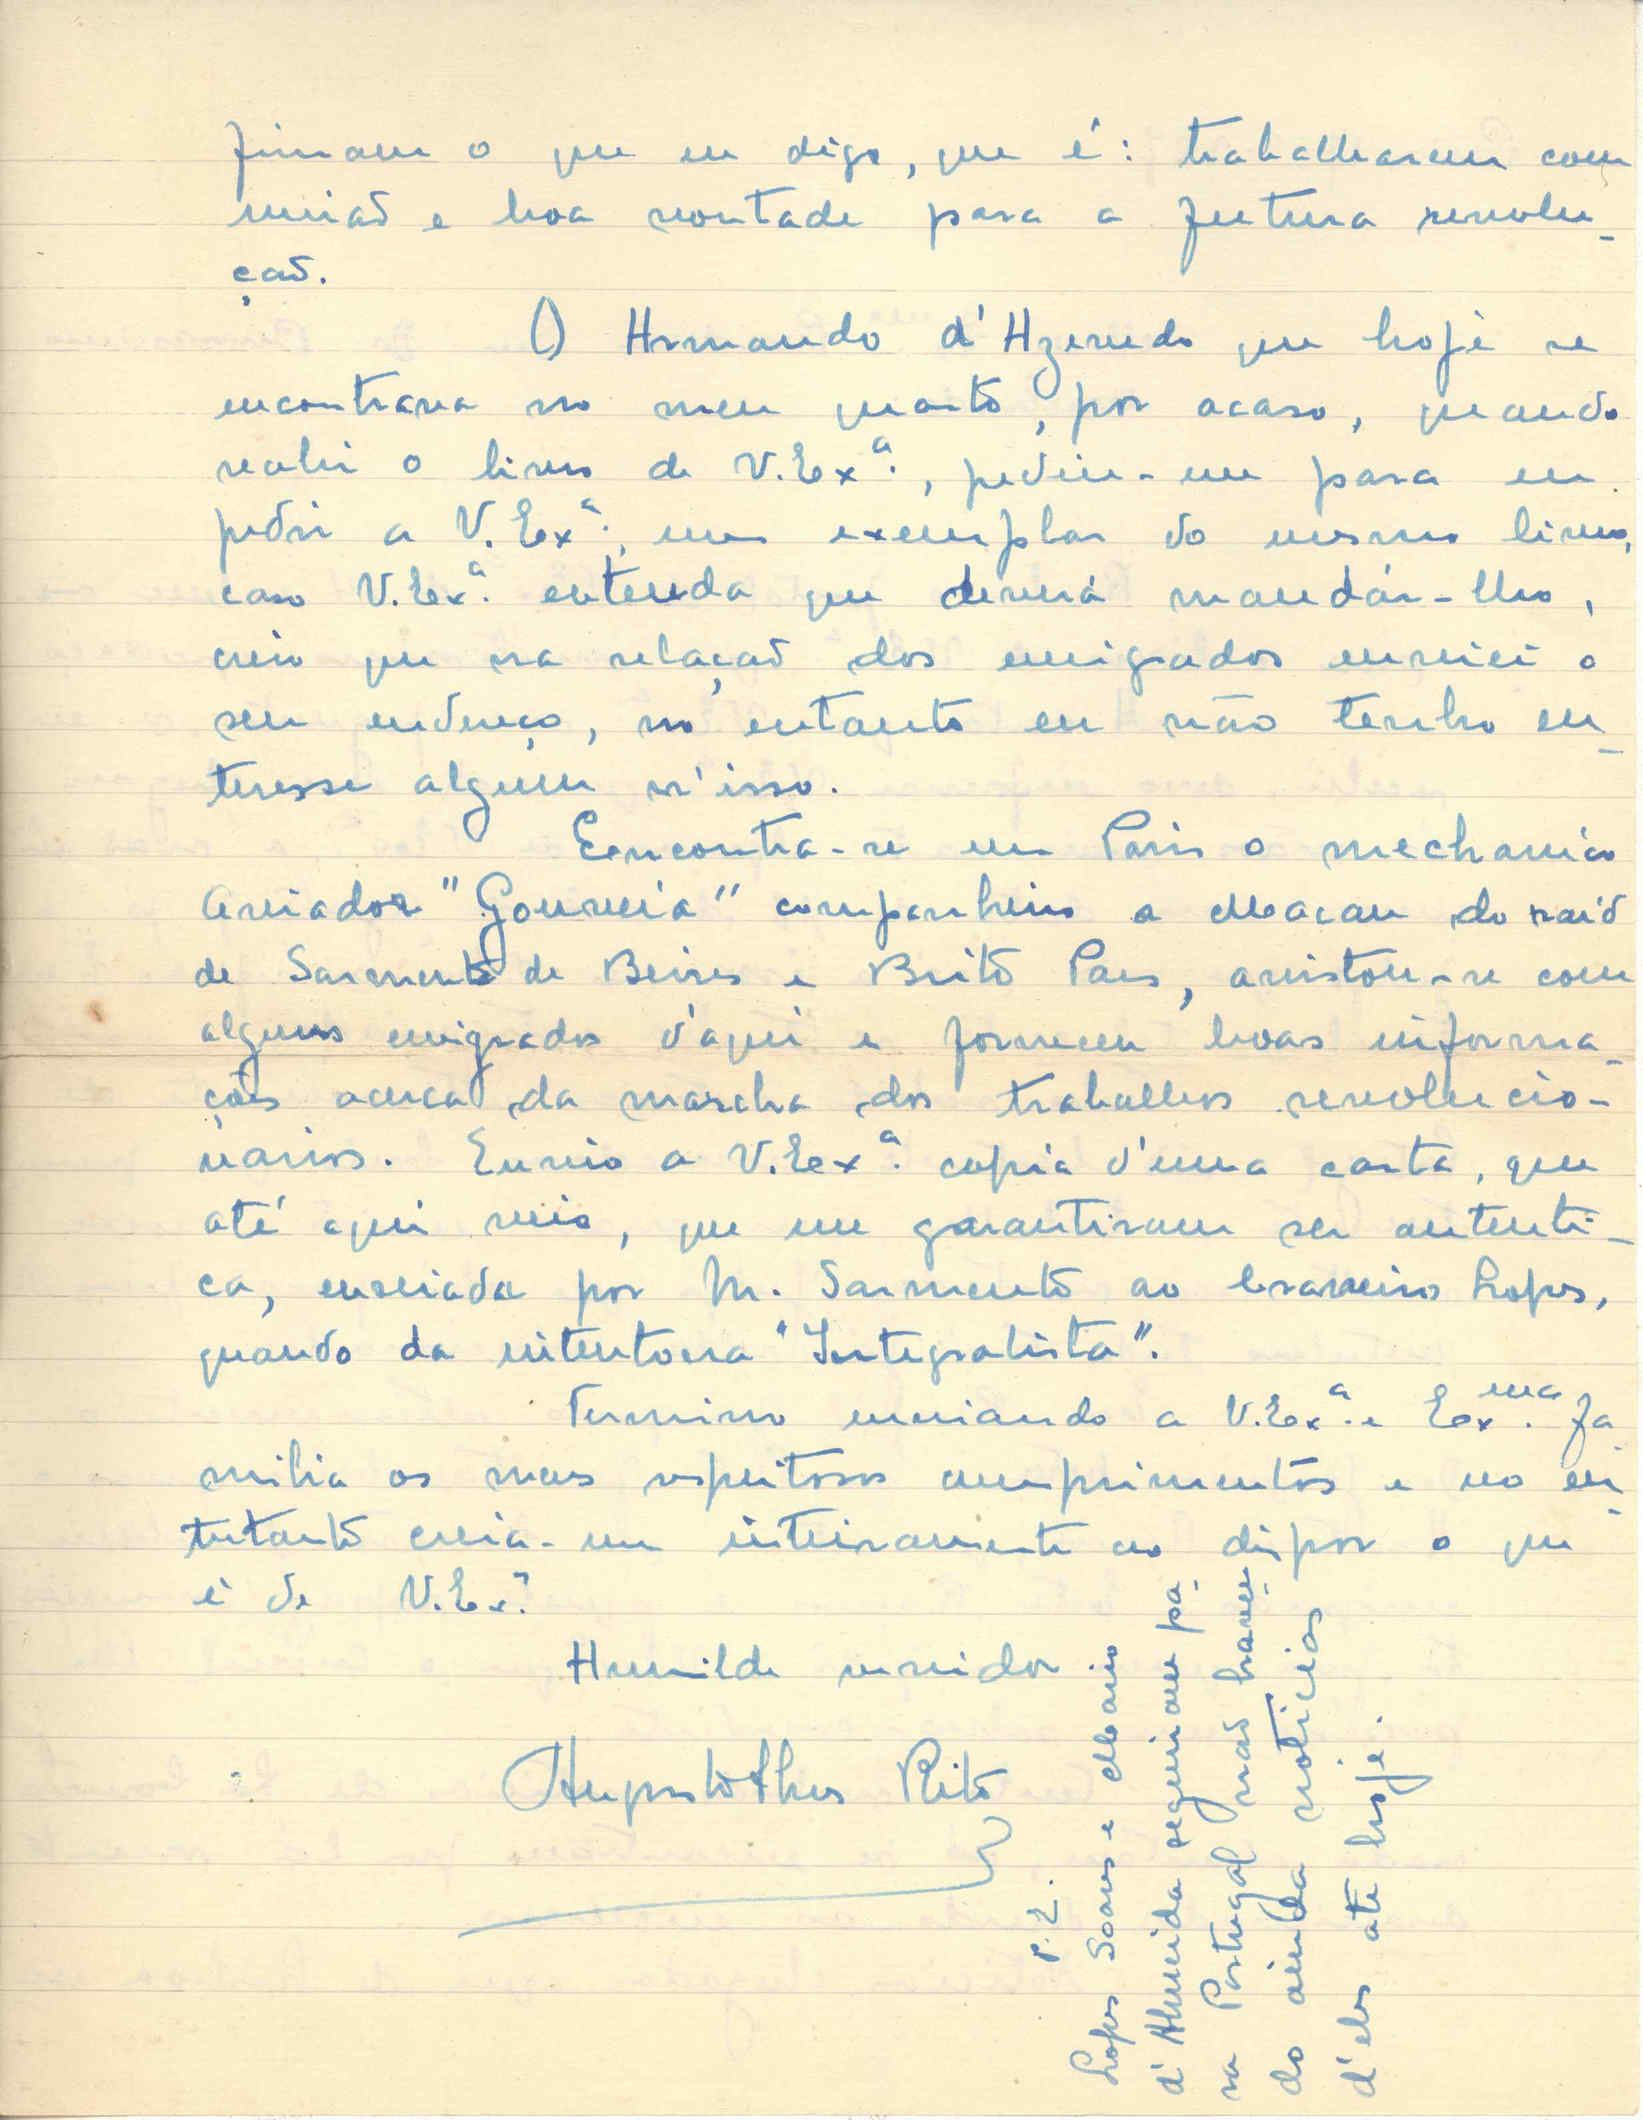 firmam o que eu digo, que é: trabalharem com
uniaõ e boa vontade para a futura revolu-
çaõ.
O Armando d'Azevedo que hoje se
encontrava no meu quarto, por acaso, quando
recebi o livro de V. Exª., pediu-me para eu
pedir a V. Exª. um exemplar do mesmo livro,
caso V. Exª. entenda que deverá mandár-lho,
creio que na relaçaõ dos emigrados enviei o
seu endereço, no entanto eu não tenho en-
teresse algum n'isso.
Encontra-se em Paris o mechanico
aviador "Gouveia" companheiro a Macau do raid
de Sarmento de Beires e Brito Paes, avistou-se com
alguns emigrados d'aqui e forneceu boas informa-
ções acerca da marcha dos trabalhos revolucio-
narios. Envio a V. Exª. copia d'uma carta, que
até aqui veio, que me garantiram ser autenti-
ca, enviada por M. Sarmento ao Craveiro Lopes,
quando da intentona "Integralista".
Termino enviando a V. Exª. e Exma. fa
milia os mais respeitosos cumprimentos e no en-
tretanto creia-me inteiramente ao dispor o que
é de V. Exª.
Humilde servidor
Rito
Lopes Soares e Mario
d'Almeida seguiram pa-
ra Portugal naõ haven-
do ainda noticias
d'eles até hoje.